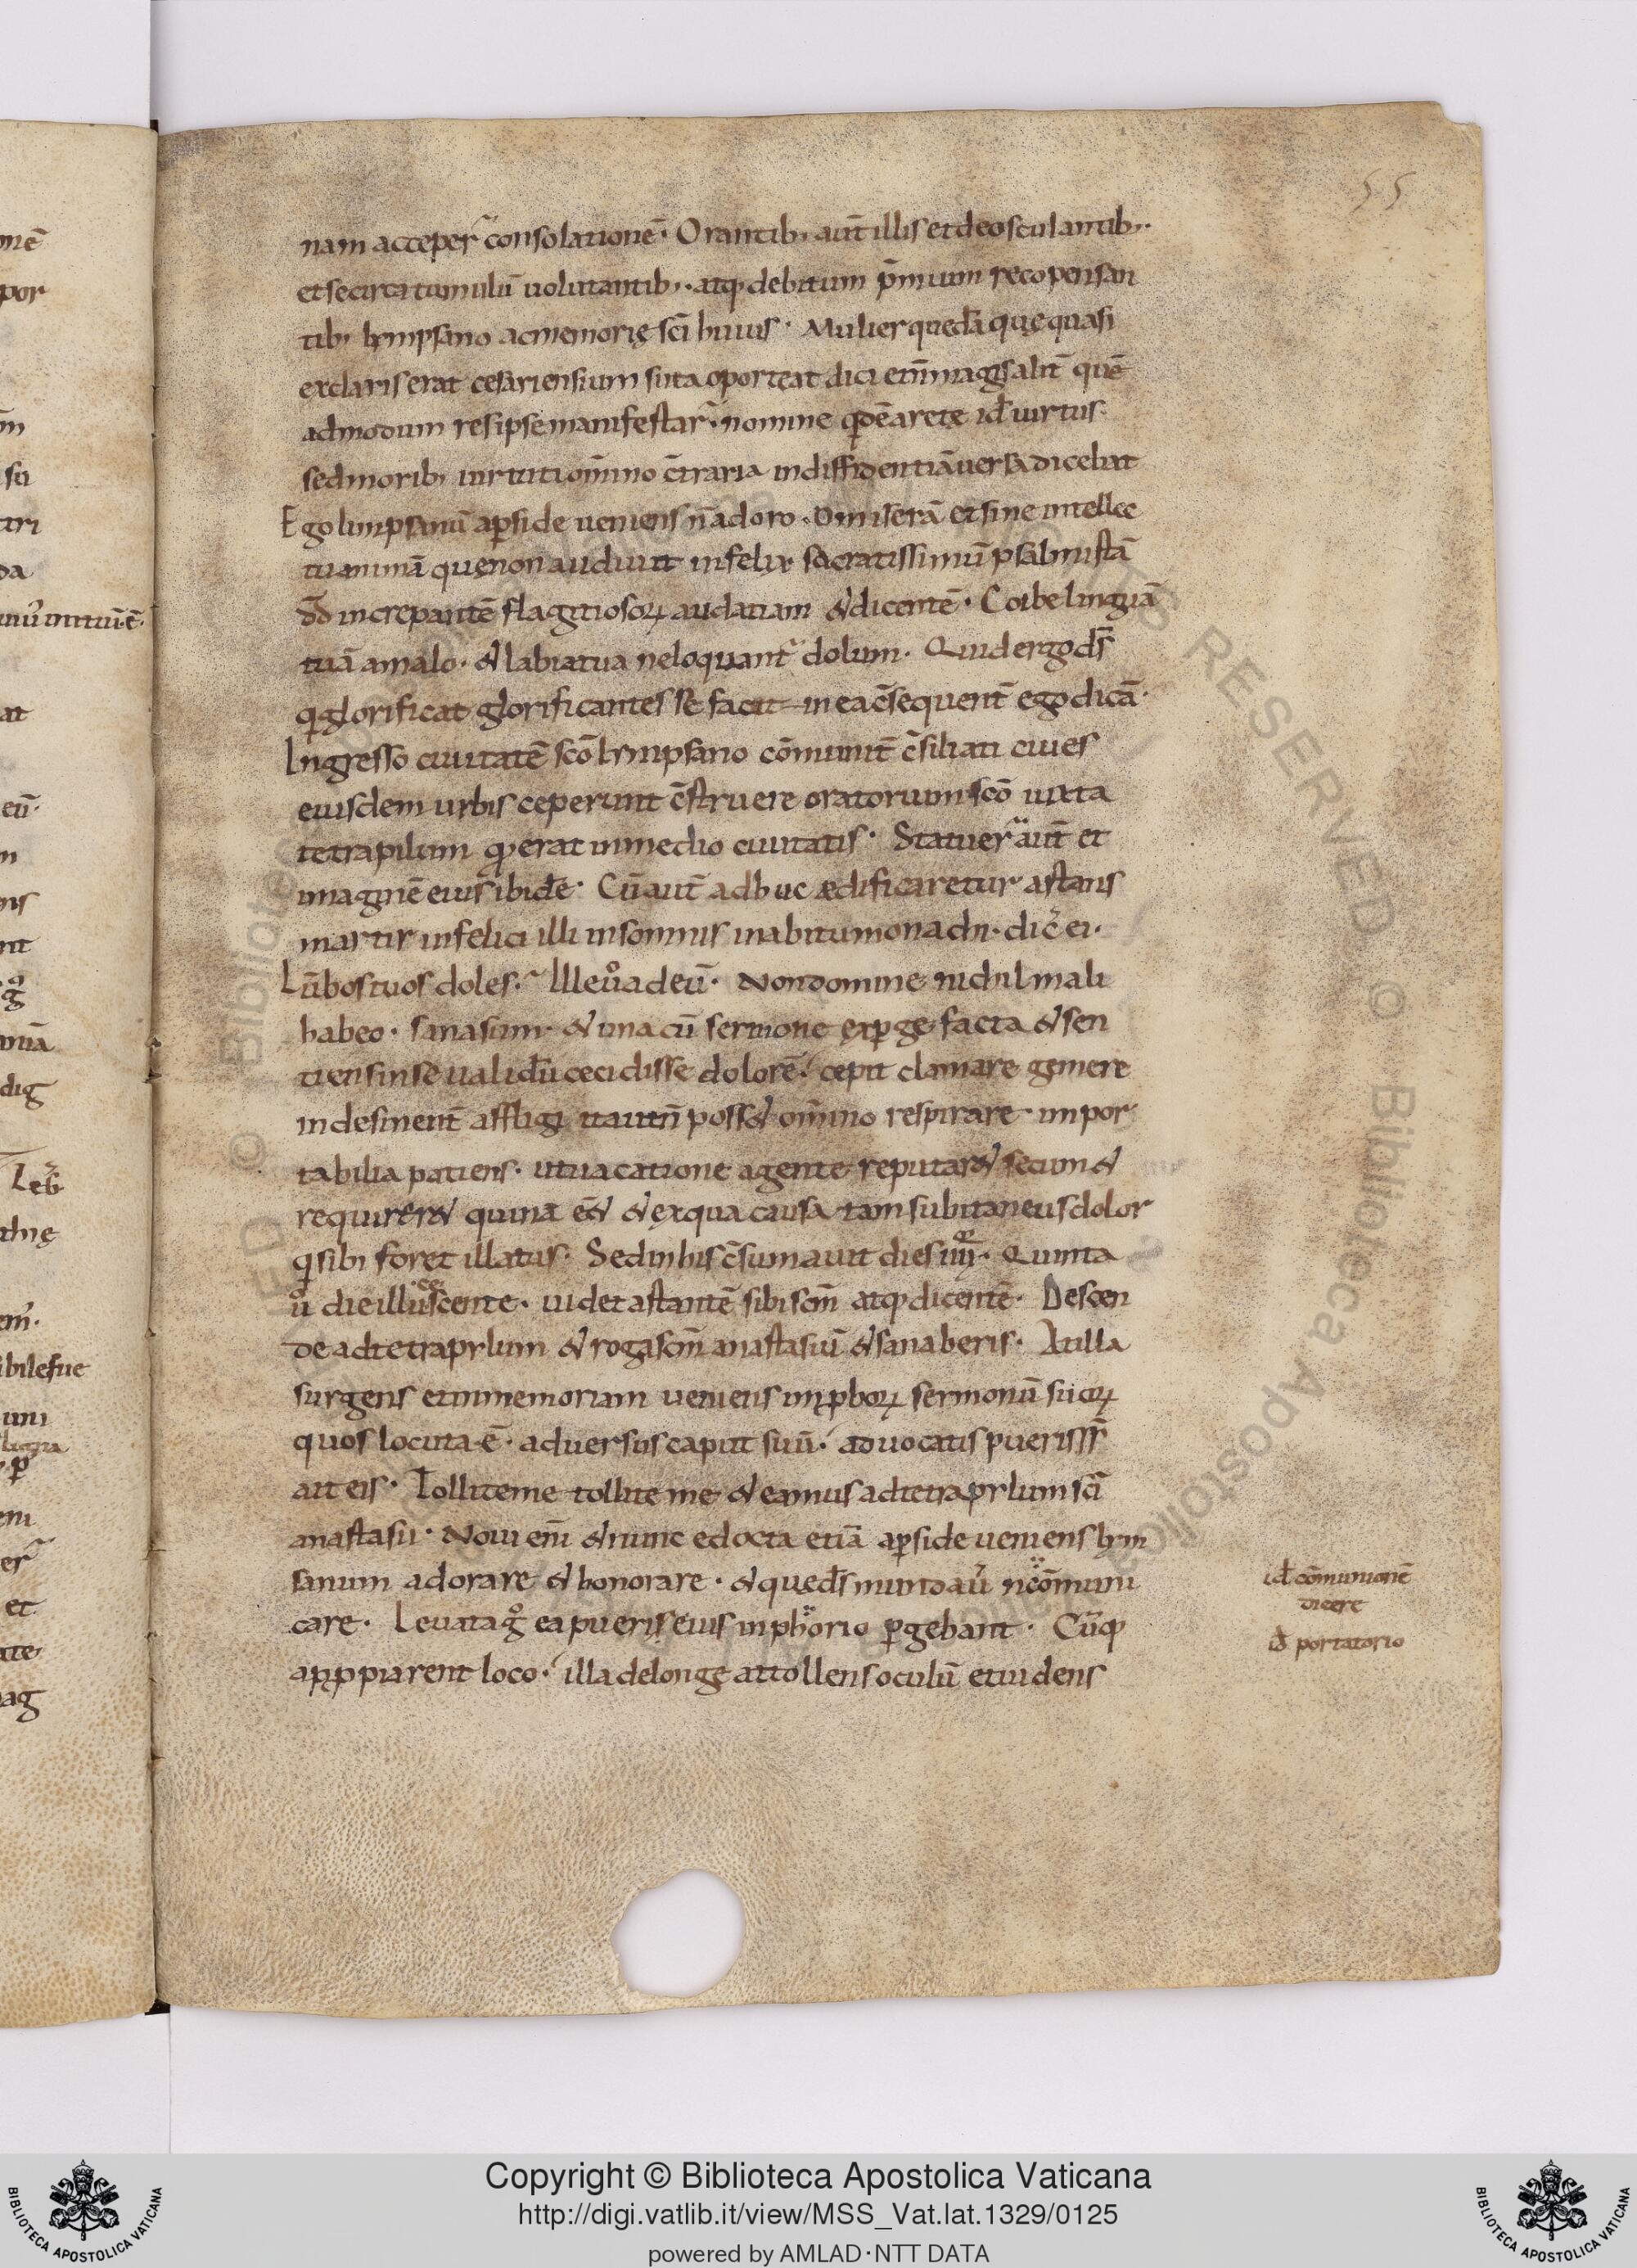 55
nam acceper̄ consolationē· Orantib; aut̄ illis et deosculantib;·
et se circa tumulū uolutantib;· atq; debitum p̄mium recopensan
tib; lympsano ac memorię sc̄i huius· Mulier quedā quę quasi
ex claris erat cesariensium si ita oporteat dici eni̅ magis alit̄ quē
admodum res ipse manifestar̄· nomine qdē arete id ē uirtus·
sed morib; uirtuti om̄ino c̄traria in diffidentiā uersa dicebat
Ego limpsanū a p̱side ueniens n̄ adoro· O miserā et sine intellec
tu animā quę non audiuit infelix sacratissimū psalmistā
dd̄ increpantē flagitiosoꝝ audatiam & dicentē· Coibe linguā
tuā a malo· & labia tua ne loquant̄ dolum· Quid ergo ds̄
q glorificat glorificantes se facit in ea c̄sequent̄ ego dicā·
Ingresso ciuitatē sc̄o lympsano cōmunit̄ c̄siliati ciues
eiusdem urbis ceperunt c̄struere oratorium sc̄o iuxta
tetrapilum q; erat in medio ciuitatis· Statuer̄ aut̄ et
imaginē eius ibidē· Cū aut̄ adhuc ædificaretur astans
martir infelici illi in somnis in habitu monachi· dic̄ ei·
Lūbos tuos doles· Ille uͦ ad eū· Non domine nichil mali
habeo· sana sum· & una cū sermone exp̱gefacta & sen
tiens in se ualidū cecidisse dolorē· cepit clamare gemere
indesinent̄ affligi ita ut n̄ poss& om̄ino respirare impor
tabilia patiens· ut uacatione agente reputar& secum &
requirer& quinā ē& & ex qua causa tam subitaneus dolor
q sibi foret illatus· Sed in his c̄sumauit dies iiii· Quinta
uͦ die illuscente· uidet astantē sibi scm̄ atq; dicentē· Descen
de ad tetrapylum & roga scm̄ anastasiū & sanaberis· At illa
surgens et in memoriam ueniens imp̱boꝝ sermonū suoꝝ
quos locuta ē· aduersus caput suū· aduocatis pueris
ait eis· Tollite me tollite me & eamus ad tetrapylum sc̄i
anastasii· Noui eni̅ & nunc edocta etiā a p̱side ueniens lym
sanum adorare & honorare· & que ds̄ mundau̅ n cōmuni
care· Leuata g̊ ea pueris eius in phorio p̱gebant· Cūq;
app̱piarent loco· illa de longe attollens oculū et uidens
id ē cōmunionē
dicere
id ē portatorio
Copyright © Biblioteca Apostolica Vaticana
http://digi.vatlib.it/view/MSS_Vat.lat.1329/0125
powered by AMLAD·NTT DATA